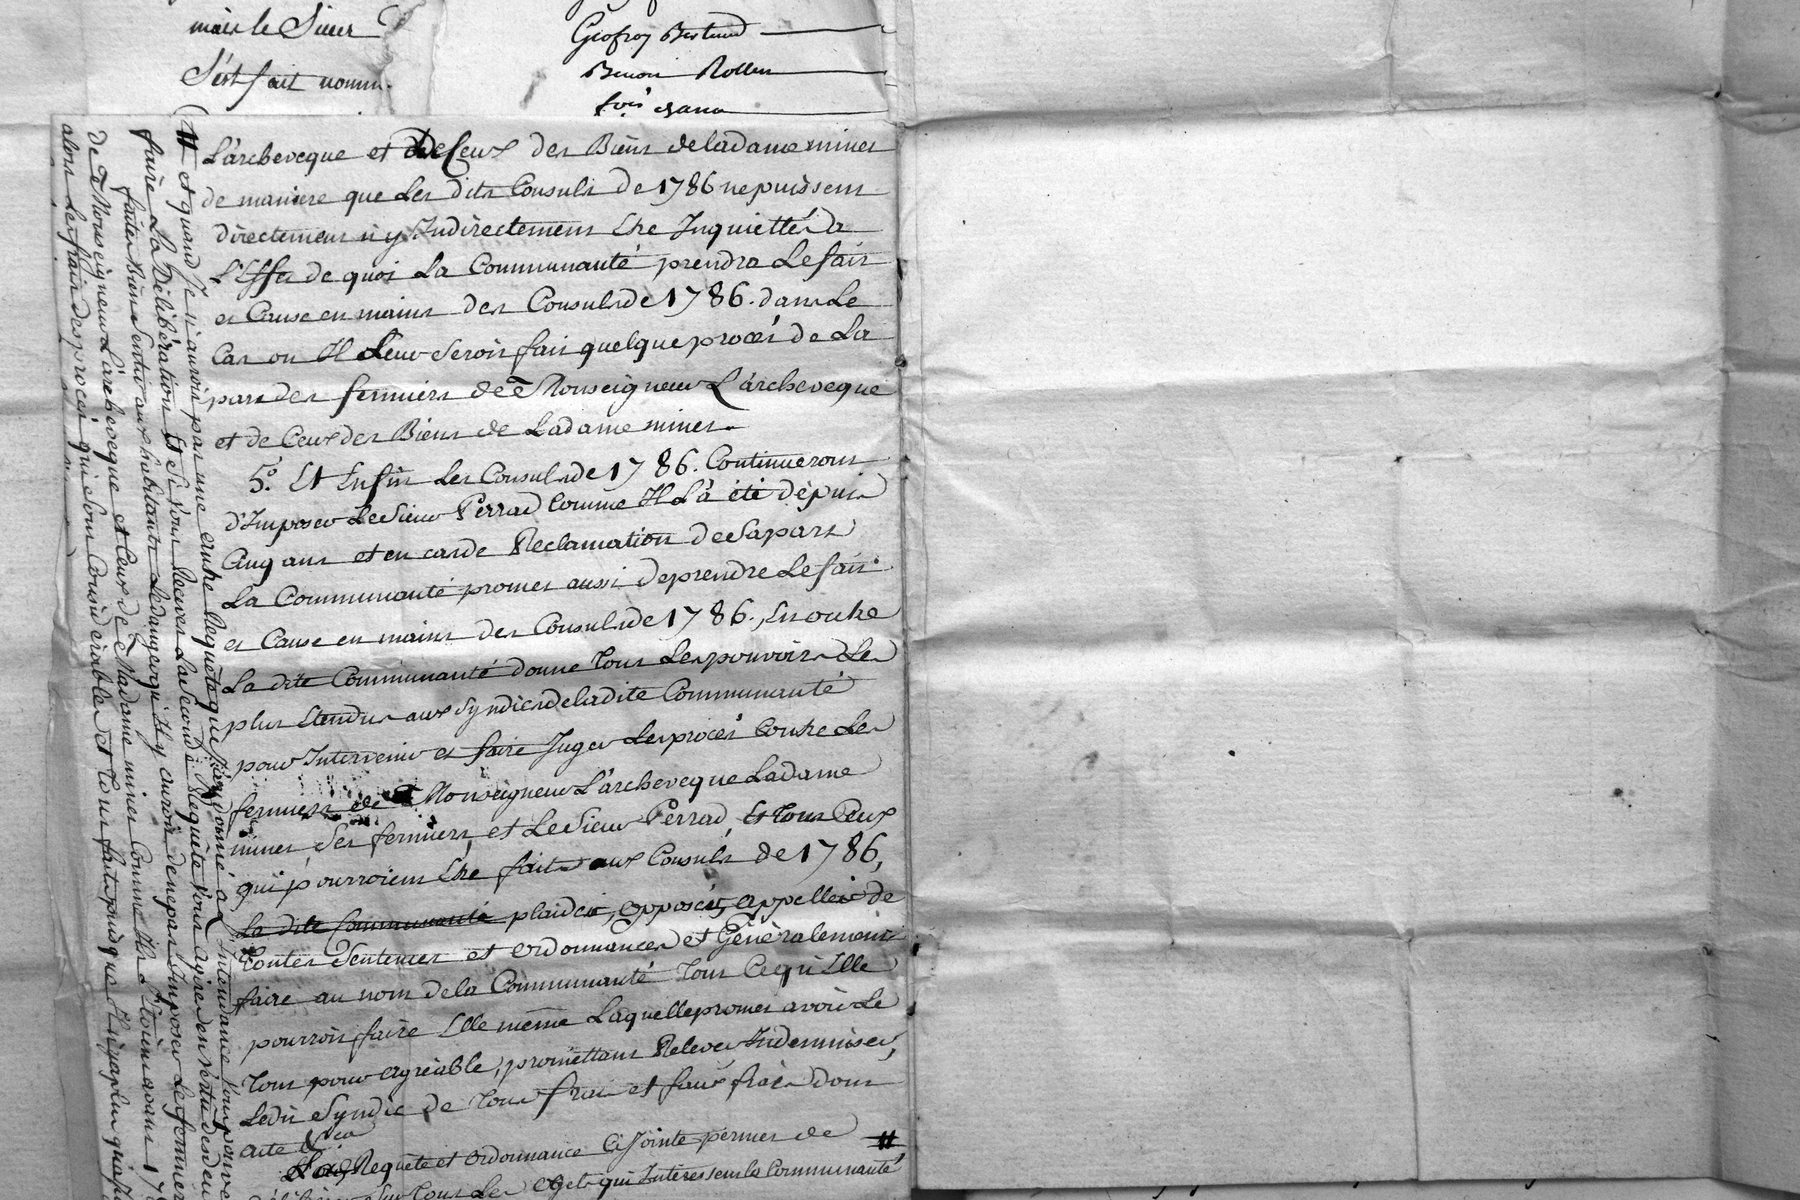 mais le Sieur
S'est fait nomm
Geofroy Bertrand
Benoi Rollin
fois
L'archeveque et de Ceux des Biens de la dame miner
de maniere que Les dits Consuls de 1786 ne puissent
directement n'y Indirectement Etre Inquiettés a
L'Effet de quoi La Communauté prendra Le fait
et Cause en mains des Consuls de 1786. dans Le
Cas ou Il Leur Seroit fait quelque procès de La
part des fermiers de Monseigneur L'archeveque
et de Ceux des Biens de La dame miner.
5.° Et Enfin Les Consuls de 1786. Continueront
d'Imposer Le Sieur Perrad Comme Il L'a été depuis
Cinq ans et en cas de Reclamation de Sa part
La Communauté promet aussi de prendre Le fait
et Cause en mains des Consuls de 1786., En outre
La dite Communauté donne Tous Les pouvoirs Les
plus Etendus aux Syndics de la dite Communauté
pour Intervenir et faire Juger Les procès Contre Les
fermiers de Monseigneur L'archeveque La dame
miner Ses fermiers, et Le Sieur Perrad Et Tous Ceux
qui pourroient Etre faits aux Consuls de 1786,
La dite Communauté plaider, opposer, appeller de
Toutes Sentences et ordonnances et Généralement
faire au nom de la Communauté Tout Ce qu'Elle
pourroit faire Elle même Laquelle promet avoir Le
Tout pour agréable, promettant Relever Indemniser,
Ledit Syndic de Tous frais et faux frais dont
acte &ca
La Requête et ordonnance Ci Jointe permet de #
Sur Tous Les objets qui Interessent la Communauté
# et quand Il n'y auroit pas une autre Requête qui a L'Intendance
faire La Délibération Et Si Vous Recevez La Seconde Requête Vous agirez en Vertu des deux
faites Bien Sentir aux habitants Le danger qu'Il y auroit de ne pas Imposer Les fermiers
de Monseigneur L'archeveque et Ceux de Madame miner Comme Ils Etoient avant 17
alors Les frais des procès qui Sont Considerables et Tous faits puisque Il n'y a plus qu'a